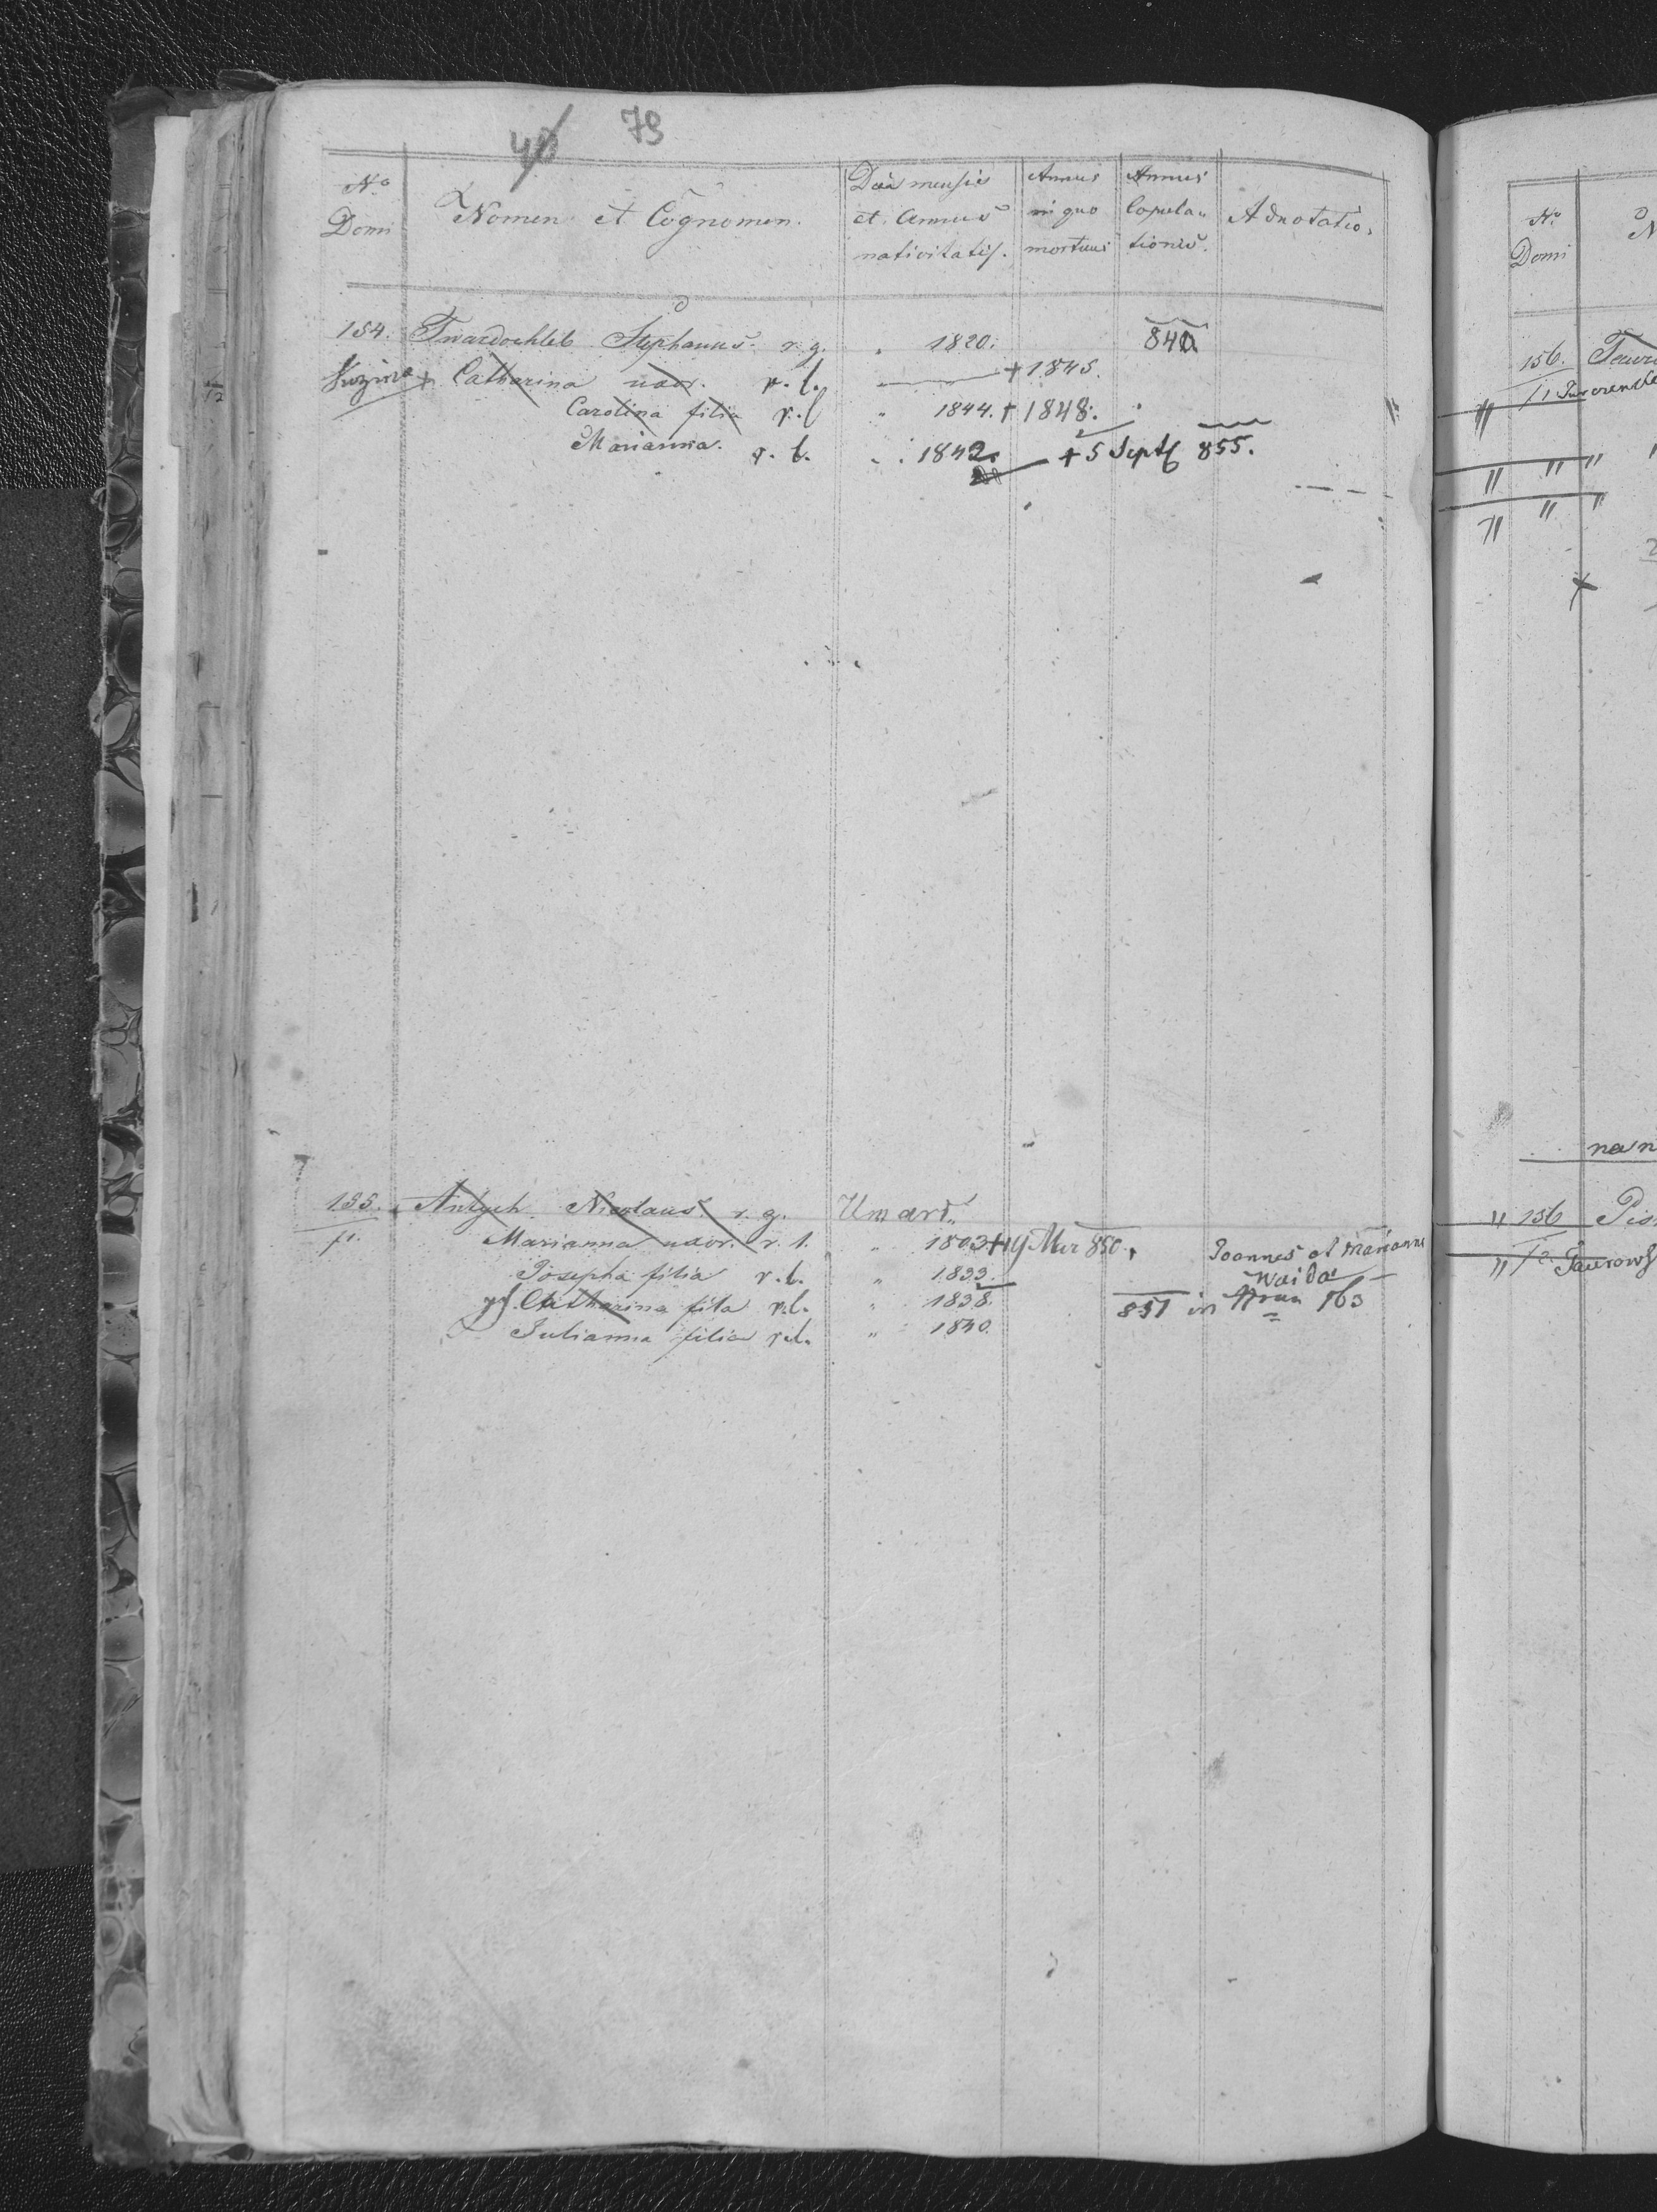 40 79
No Domi Nomen et Cognomen. Dies mensis et Annus nativitatis. Annus in quo mortuus Annus Copulationis. Adnotatio.
154. Twardochleb Stephanus r. g. " 1820. 840.
+ Catharina uxor. r. l. + 1845.
Carolina filia r. l " 1844. + 1848.
Marianna. r. l. " 1842. + 5 Sept 855.
155. Nicolaus r. g. Umard
/1. Marianna uxor. r. l. " 1803 + 19 850.
Joannes et Marianna
Josepha filia r. l. " 1833. Waida
Catharina filia r. l. " 1838. 851 in 163
Julianna filia r. l. " 1840.
No Domi N
156.
/1
" " "
" " "
"
na n
" 156 Pis
" /2.